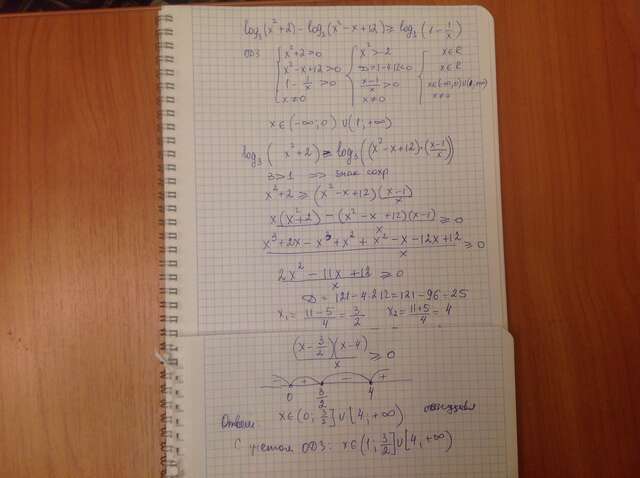 log₃(x²+2) - log₃(x²-x+12) ≥ log₃(1 - 1/x)
ОДЗ { x²+2>0 { x²>-2 { x∈R
x²-x+12>0 D=1-4·12<0 x∈R
1 - 1/x > 0 (x-1)/x > 0 x∈(-∞;0)∪(1;+∞)
x≠0 x≠0 x≠0
x∈(-∞;0)∪(1;+∞)
log₃(x²+2) ≥ log₃((x²-x+12)·(x-1)/x)
3>1 => знак сохр
x²+2 ≥ (x²-x+12)(x-1)/x
(x(x²+2) - (x²-x+12)(x-1))/x ≥ 0
(x³+2x-x³+x²+x²-x-12x+12)/x ≥ 0
(2x²-11x+12)/x ≥ 0
D = 121-4·2·12=121-96=25
x₁ = (11-5)/4 = 3/2 x₂ = (11+5)/4 = 4
((x-3/2)(x-4))/x ≥ 0
- + - +
0 3/2 4
Ответ x∈(0; 3/2]∪[4;+∞)
С учетом ОДЗ: x∈(1; 3/2]∪[4;+∞)